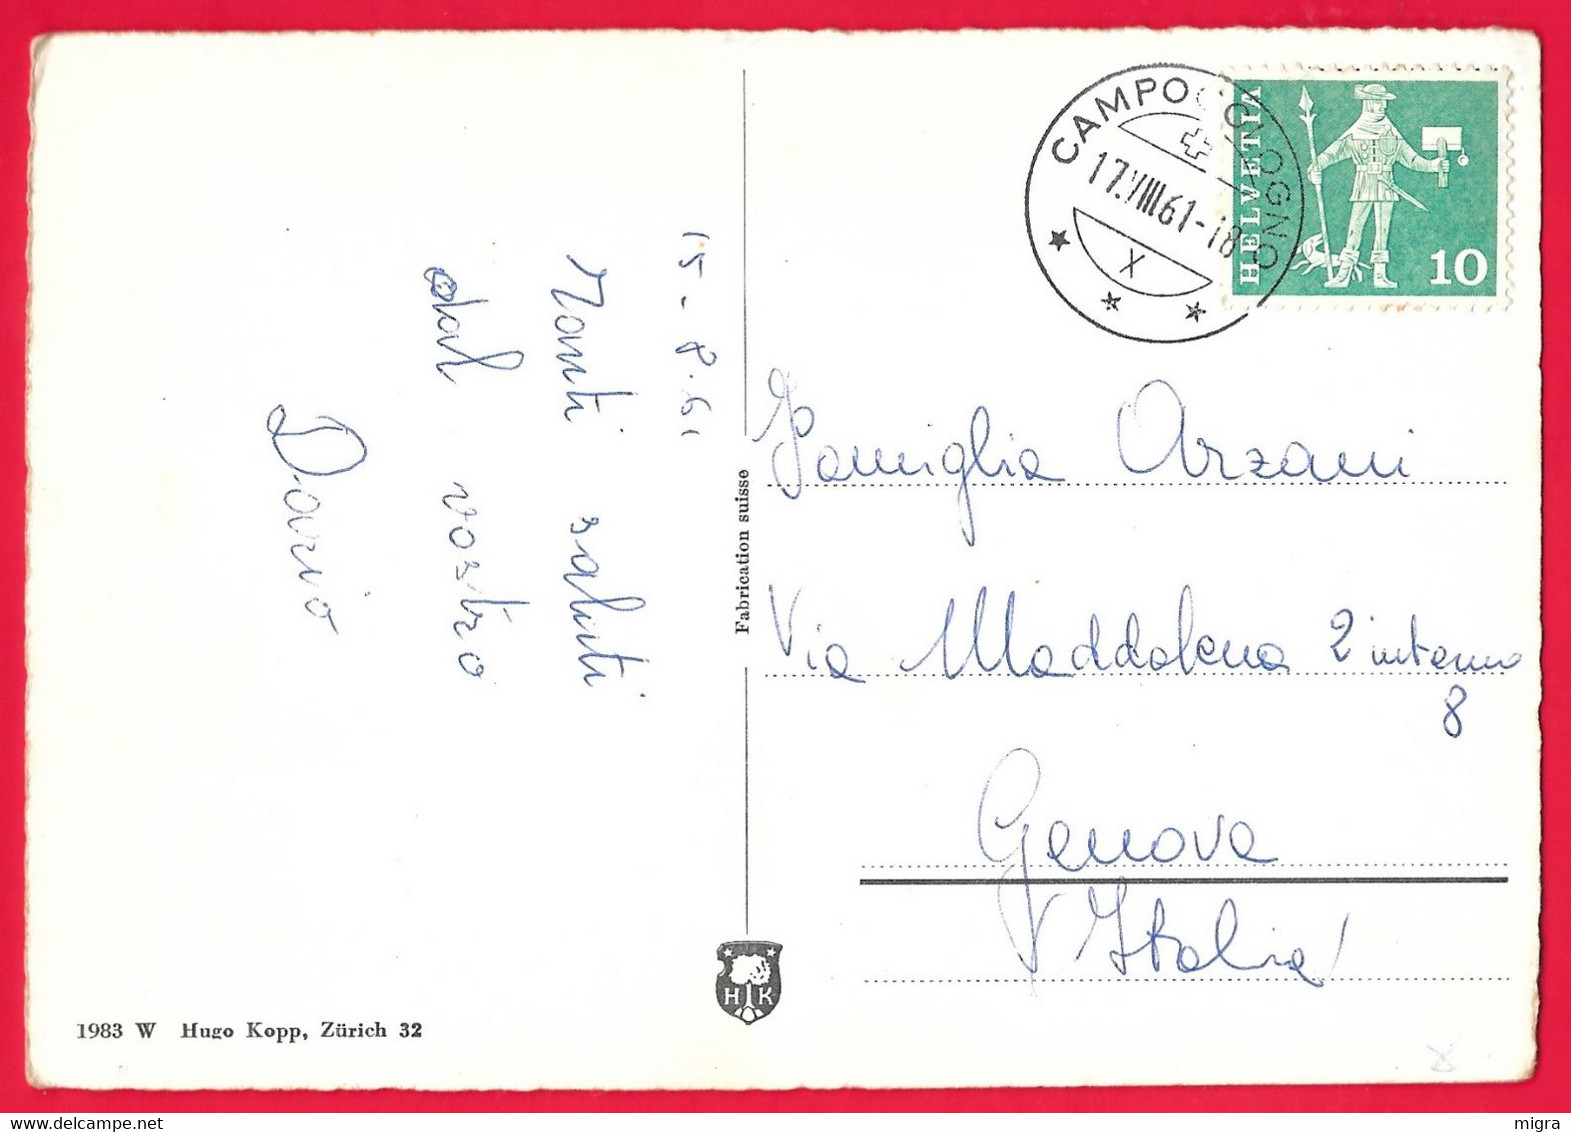 15-8-61
Tanti saluti
dal vostro
Dario
Fabrication suisse
1983 W Hugo Kopp, Zürich 32
H K
CAMPOCOLOGNO
17.VIII.61-18
X
HELVETIA
10
Famiglia Arzani
Via Maddalena 2 interno
8
Genova
(Italia)
migra